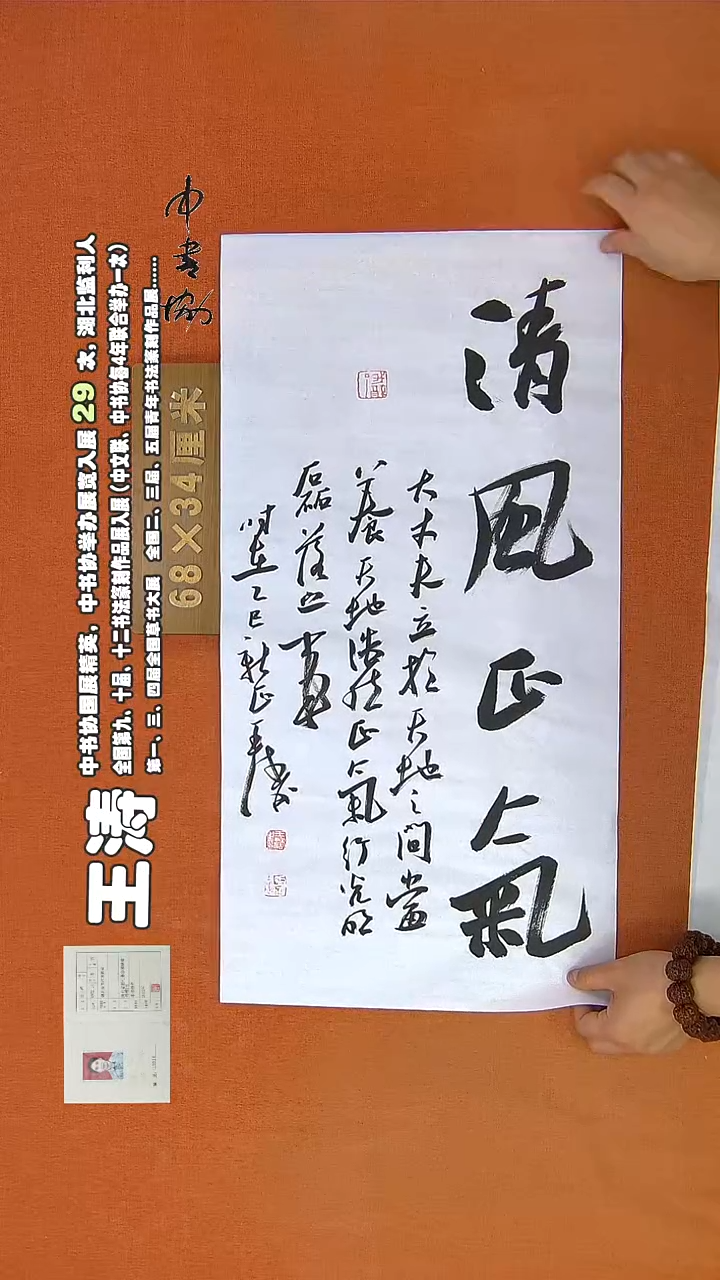 清风正氣
大丈夫立於天地之間當
養天地浩然正氣行光明
磊落之事
時在乙巳新正王涛
中書協
68×34厘米
中书协国展精英，中书协举办展览入展 29 次，湖北监利人
全国第九、十届、十二书法篆刻作品展入展（中文联、中书协每4年联合举办一次）
第一、三、四届全国草书大展 全国二、三届、五届青年书法篆刻作品展......
王涛